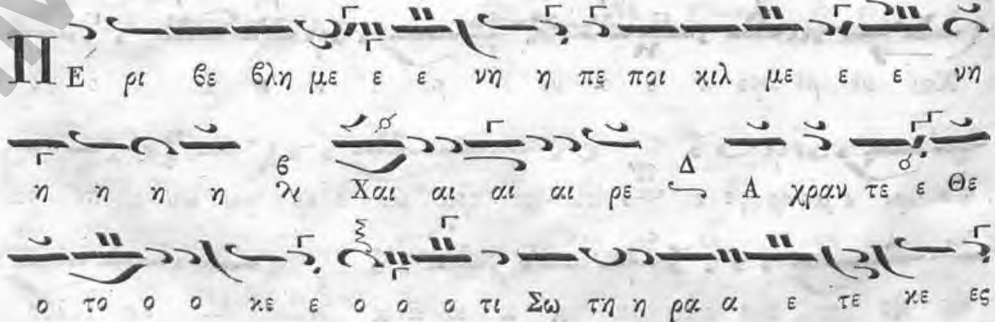 ΠΕ ρι βε βλη με ε ε νη η πε ποι κιλ με ε ε νη
η η η η Χαι αι αι αι ρε Δ Α χραν τε ε Θε
ο το ο ο κε ε ο ο ο τι Σω τη η ρα α ε τε κε ες